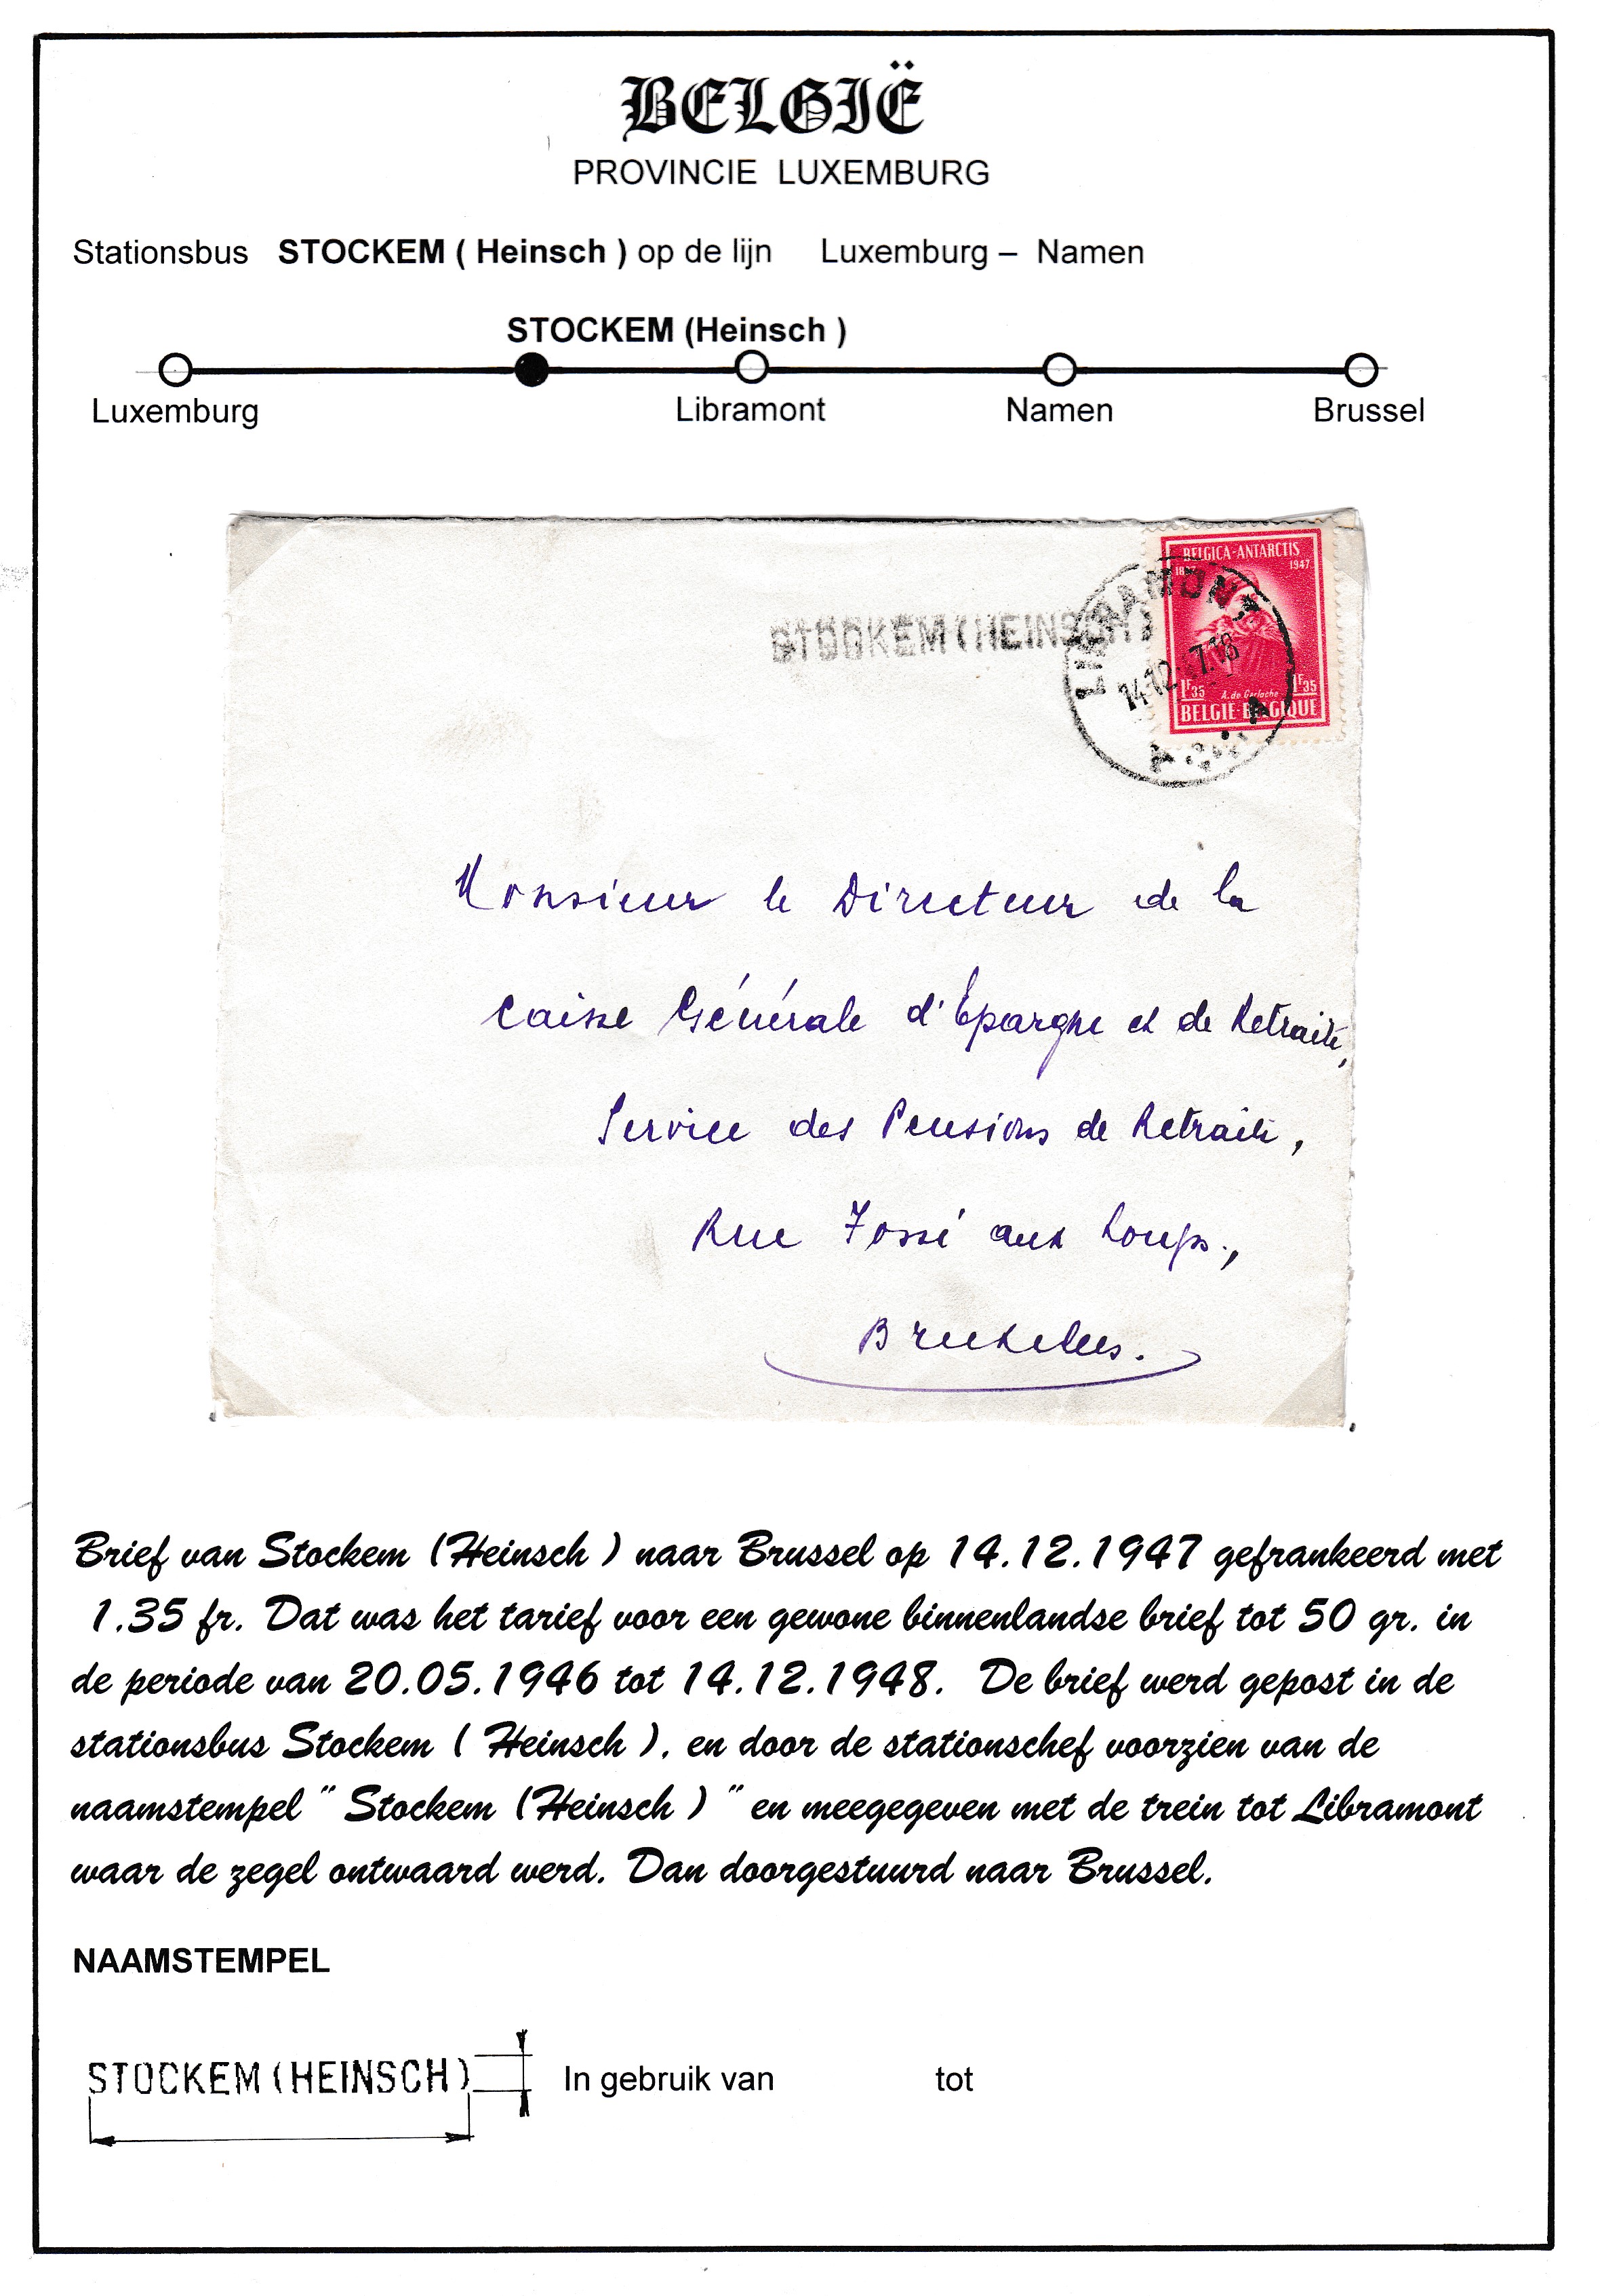 BELGIË
PROVINCIE LUXEMBURG
Stationsbus STOCKEM ( Heinsch ) op de lijn Luxemburg – Namen
STOCKEM (Heinsch )
Luxemburg Libramont Namen Brussel
BELGICA-ANTARCTIS
1947
STOCKEM (HEINSCH)
LIBRAMONT
14.12. 7.18
1F35 A. de Gerlache 1F35
BELGIE-BELGIQUE
A A
Monsieur le Directeur de la
Caisse Générale d'Épargne et de Retraite,
Service des Pensions de Retraite,
Rue Fossé aux Loups.,
Bruxelles.
Brief van Stockem (Heinsch ) naar Brussel op 14.12.1947 gefrankeerd met
1.35 fr. Dat was het tarief voor een gewone binnenlandse brief tot 50 gr. in
de periode van 20.05.1946 tot 14.12.1948. De brief werd gepost in de
stationsbus Stockem ( Heinsch ), en door de stationschef voorzien van de
naamstempel " Stockem (Heinsch ) " en meegegeven met de trein tot Libramont
waar de zegel ontwaard werd. Dan doorgestuurd naar Brussel.
NAAMSTEMPEL
STOCKEM (HEINSCH) In gebruik van tot